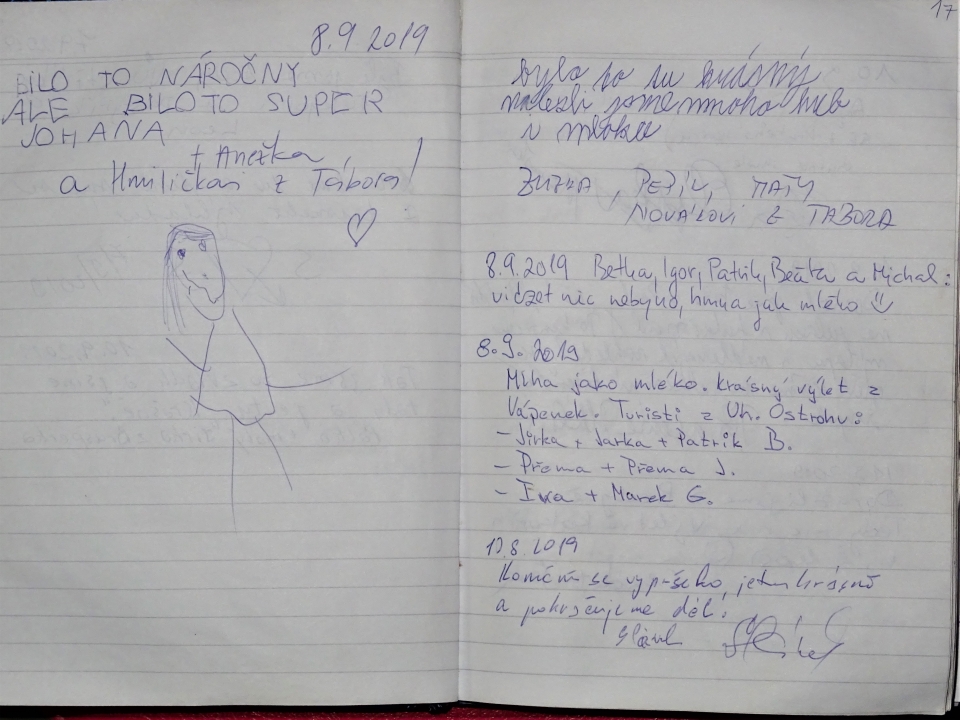 8.9.2019
BILO TO NÁROČNY
ALE BILO TO SUPER
JOHAŇA
+ Anežka
a Hruličkovi z Tábora!
17
bylo to tu krásný
nalezli jsme mnoho hub
i mloka
ZUZKA, PEŽIK, MATY
NOVÁKOVI Z TÁBORA
8.9.2019 Betka, Igor, Patrik, Beáta a Michal:
vidzet nic nebylo, hmla jak mléko
8.9.2019
Mlha jako mléko. krásný výlet z
Vápenek. Turisti z Uh. Ostrohu:
- Jirka + Jarka + Patrik B.
- Přema + Přema J.
- Iva + Marek G.
8.2019
Konečně se vypršelo, je tu krásně
a pokračujeme dál!